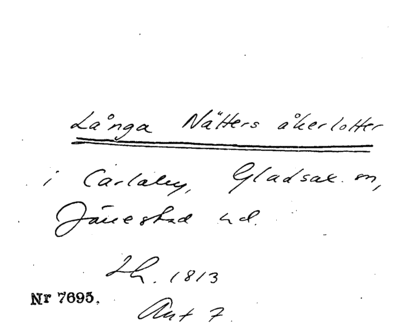 Långa Nätters åkerlotter
i Carlaby, Gladsax sn,
Järrestad hd.
Lh. 1813
Nr 7695.
Ant 7